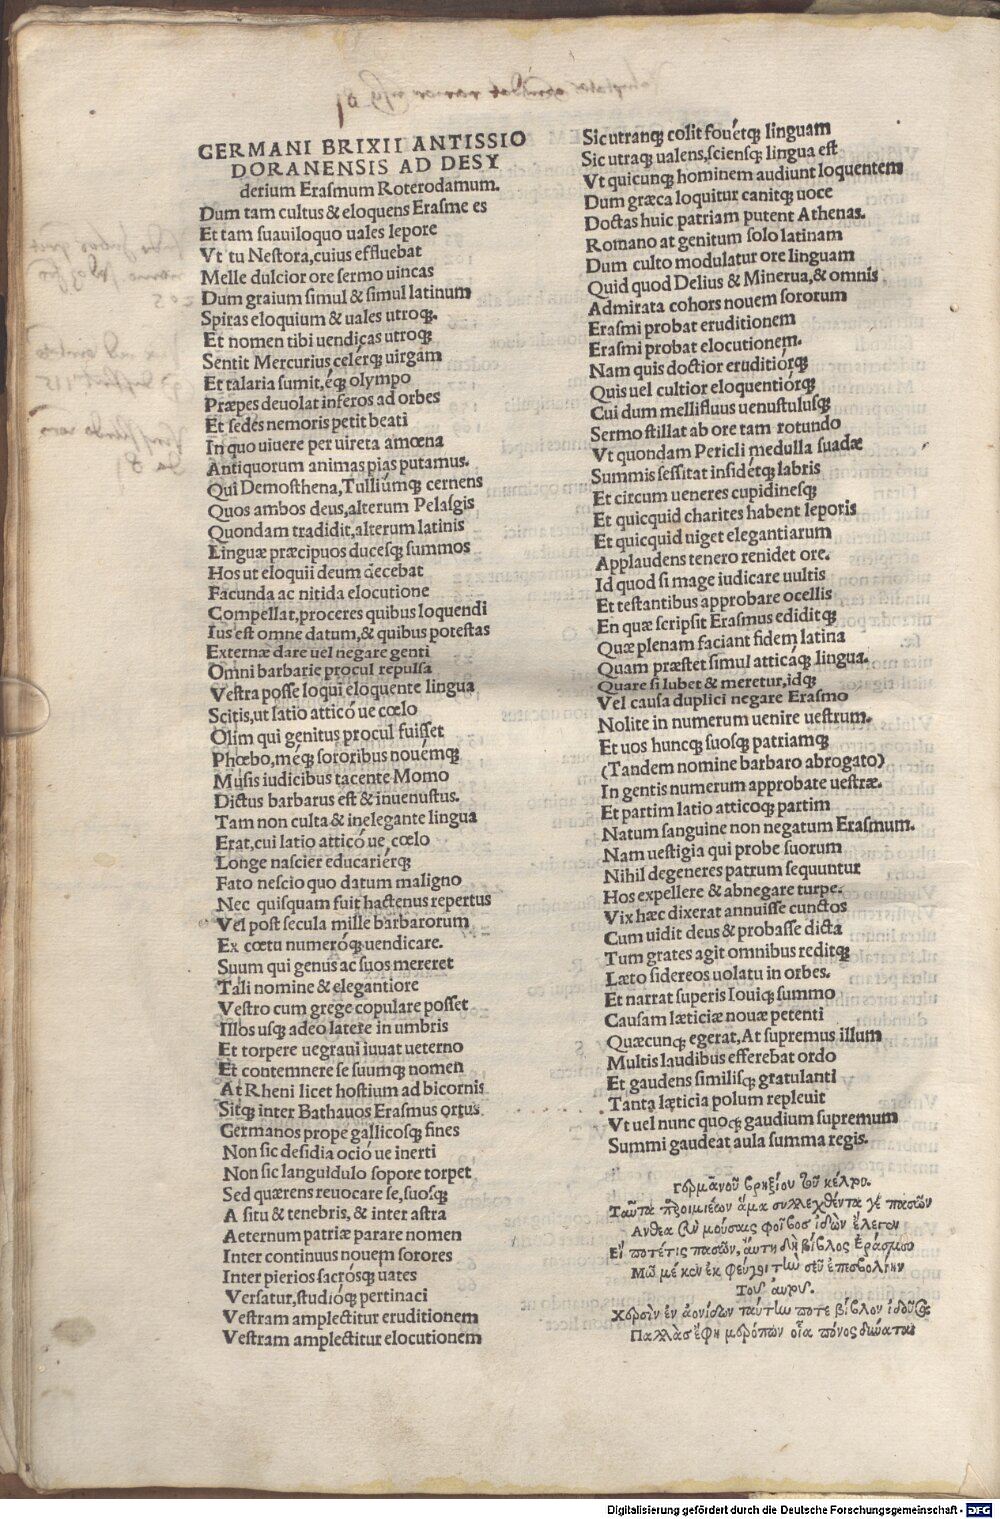 GERMANI BRIXII ANTISSIO
DORANENSIS AD DESY
derium Erasmum Roterodamum.
Dum tam cultus & eloquens Erasme es
Et tam suauiloquo uales lepore
Vt tu Nestora,cuius effluebat
Melle dulcior ore sermo uincas
Dum graium simul & simul latinum
Spiras eloquium & uales utroqꝫ.
Et nomen tibi uendicas utroqꝫ
Sentit Mercurius celerqꝫ uirgam
Et talaria sumit,éqꝫ olympo
Præpes deuolat inferos ad orbes
Et sedes nemoris petit beati
In quo uiuere per uireta amœna
Antiquorum animas pias putamus.
Qui Demosthena,Tulliúmqꝫ cernens
Quos ambos deus,alterum Pelasgis
Quondam tradidit,alterum latinis
Linguæ præcipuos ducesqꝫ summos
Hos ut eloquii deum decebat
Facunda ac nitida elocutione
Compellat,proceres quibus loquendi
Ius est omne datum,& quibus potestas
Externæ dare uel negare genti
Omni barbarie procul repulsa
Vestra posse loqui eloquente lingua
Scitis,ut latio atticó ue cœlo
Olim qui genitus procul fuisset
Phœbo,méqꝫ sororibus nouémqꝫ
Musis iudicibus tacente Momo
Dictus barbarus est & inuenustus.
Tam non culta & inelegante lingua
Erat,cui latio atticó ue cœlo
Longe nascier educariérqꝫ
Fato nescio quo datum maligno
Nec quisquam fuit hactenus repertus
Vel post secula mille barbarorum
Ex cœtu numeróqꝫ uendicare.
Suum qui genus ac suos mereret
Tali nomine & elegantiore
Vestro cum grege copulare posset
Illos usqꝫ adeo latere in umbris
Et torpere uegraui iuuat ueterno
Et contemnere se suumqꝫ nomen
At Rheni licet hostium ad bicornis
Sitqꝫ inter Bathauos Erasmus ortus
Germanos prope gallicosqꝫ fines
Non sic desidia oció ue inerti
Non sic languidulo sopore torpet
Sed quærens reuocare se,suosqꝫ
A situ & tenebris, & inter astra
Aeternum patriæ parare nomen
Inter continuus nouem sorores
Inter pierios sacrósqꝫ uates
Versatur,studióqꝫ pertinaci
Vestram amplectitur eruditionem
Vestram amplectitur elocutionem
Sic utranqꝫ colit fouétqꝫ linguam
Sic utraqꝫ ualens,sciensqꝫ lingua est
Vt quicunqꝫ hominem audiunt loquentem
Dum græca loquitur canitqꝫ uoce
Doctas huic patriam putent Athenas.
Romano at genitum solo latinam
Dum culto modulatur ore linguam
Quid quod Delius & Minerua,& omnis
Admirata cohors nouem sororum
Erasmi probat eruditionem
Erasmi probat elocutionem.
Nam quis doctior eruditiórqꝫ
Quis uel cultior eloquentiórqꝫ
Cui dum mellifluus uenustulusqꝫ
Sermo stillat ab ore tam rotundo
Vt quondam Pericli medulla suadæ
Summis sessitat insidétqꝫ labris
Et circum ueneres cupidinesqꝫ
Et quicquid charites habent leporis
Et quicquid uiget elegantiarum
Applaudens tenero renidet ore.
Id quod si mage iudicare uultis
Et testantibus approbare ocellis
En quæ scripsit Erasmus ediditqꝫ
Quæ plenam faciant fidem latina
Quam præstet simul atticáqꝫ lingua.
Quare si lubet & meretur,idqꝫ
Vel causa duplici negare Erasmo
Nolite in numerum uenire uestrum.
Et uos huncqꝫ suosqꝫ patriamqꝫ
(Tandem nomine barbaro abrogato)
In gentis numerum approbate uestræ.
Et partim latio atticoqꝫ partim
Natum sanguine non negatum Erasmum.
Nam uestigia qui probe suorum
Nihil degeneres patrum sequuntur
Hos expellere & abnegare turpe.
Vix hæc dixerat annuisse cunctos
Cum uidit deus & probasse dicta
Tum grates agit omnibus reditqꝫ
Læto sidereos uolatu in orbes.
Et narrat superis Iouiqꝫ summo
Causam læticiæ nouæ petenti
Quæcunqꝫ egerat,At supremus illum
Multis laudibus efferebat ordo
Et gaudens similisqꝫ gratulanti
Tanta læticia polum repleuit
Vt uel nunc quoqꝫ gaudium supremum
Summi gaudeat aula summa regis.
Γερμανοῦ βρηξίου τοῦ
Ταῦτα ἅμα συλλεχθέντα
Ανθεα μούσαις φοῖβος ἰδὼν ἔλεγον
Εἴ ποτέ τις πασῶν, αὕτη δὴ βίβλος Ἐράσμου
Τοῦ αὐτοῦ.
Χερσὶν ἐν ἀονίδων ταύτην ποτε βίβλον ἰδοῦσα
Παλλὰς ἔφη μερόπων οἷα πόνος δύναται
Digitalisierung gefördert durch die Deutsche Forschungsgemeinschaft - DFG